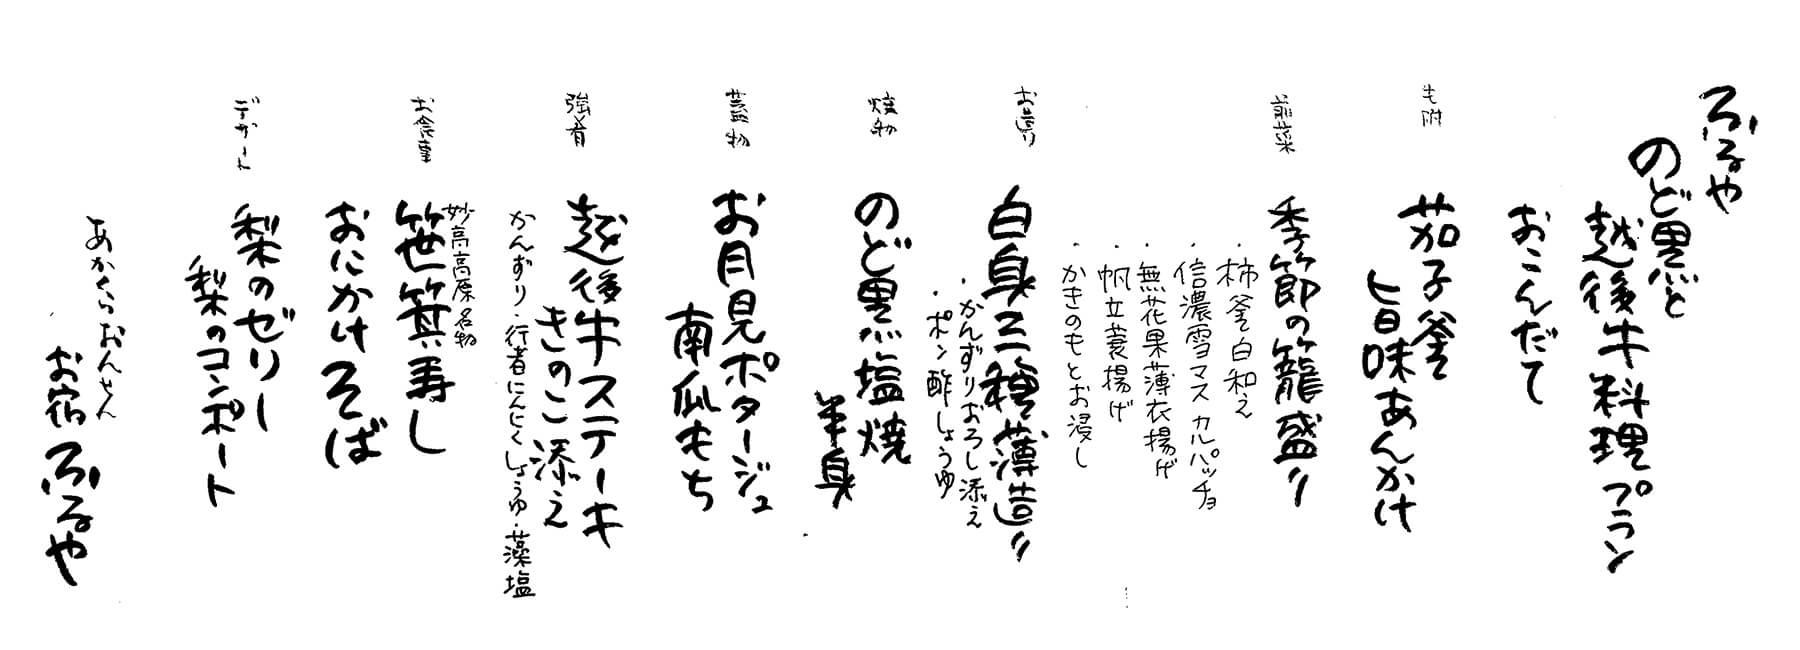 ふるや
のど黒と
越後牛料理プラン
おこんだて
先附
茄子釜
旨味あんかけ
前菜
季節の籠盛り
・柿釜白和え
・信濃雪マスカルパッチョ
・無花果薄衣揚げ
・帆立蓑揚げ
・かきのもとお浸し
お造り
白身三種薄造り
・かんずりおろし添え
・ポン酢しょうゆ
焼物
のど黒塩焼
半身
蓋物
お月見ポタージュ
南瓜もち
強肴
越後牛ステーキ
きのこ添え
かんずり・行者にんにくしょうゆ・藻塩
お食事
妙高高原名物
笹箕寿し
おにかけそば
デザート
梨のゼリー
梨のコンポート
あかくらおんせん
お宿ふるや